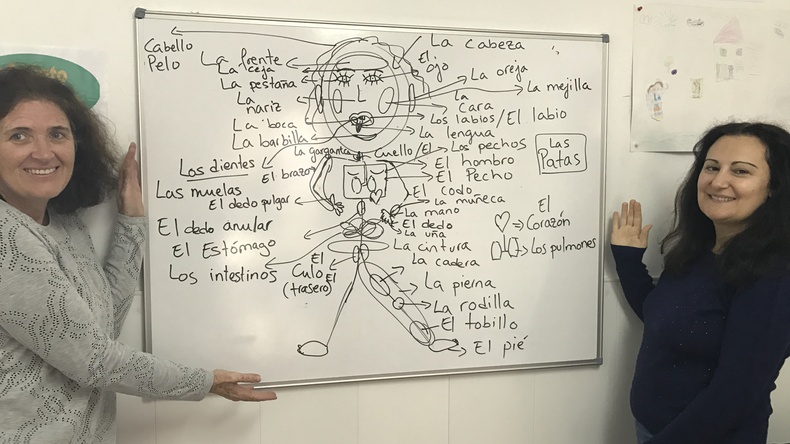 Cabello
Pelo
La frente
La ceja
La pestaña
La
nariz
La boca
La barbilla
La garganta
Los dientes
El brazo
Las muelas
El dedo pulgar
El dedo anular
El Estómago
Los intestinos
El
Culo
(trasero)
El
La cabeza
El
ojo
La oreja
La mejilla
La
Cara
Los labios/El labio
La lengua
Cuello/El
Los pechos
El hombro
El Pecho
El codo
La muñeca
La mano
El dedo
La uña
La cintura
La cadera
La pierna
La rodilla
El tobillo
El pié
Las
Patas
El
Corazón
Los pulmones